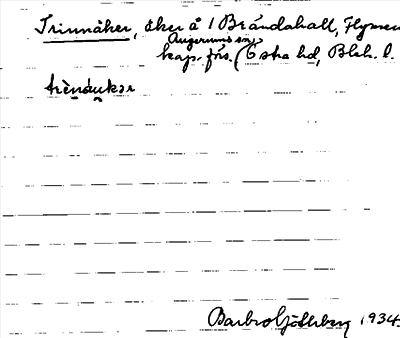 Trinnåker, åker å 1 Brändahall, Flymen
Augerums sn,
kap. förs. (Östra hd, Blek. l.
trèndukər
Barbro Götherberg 1934.